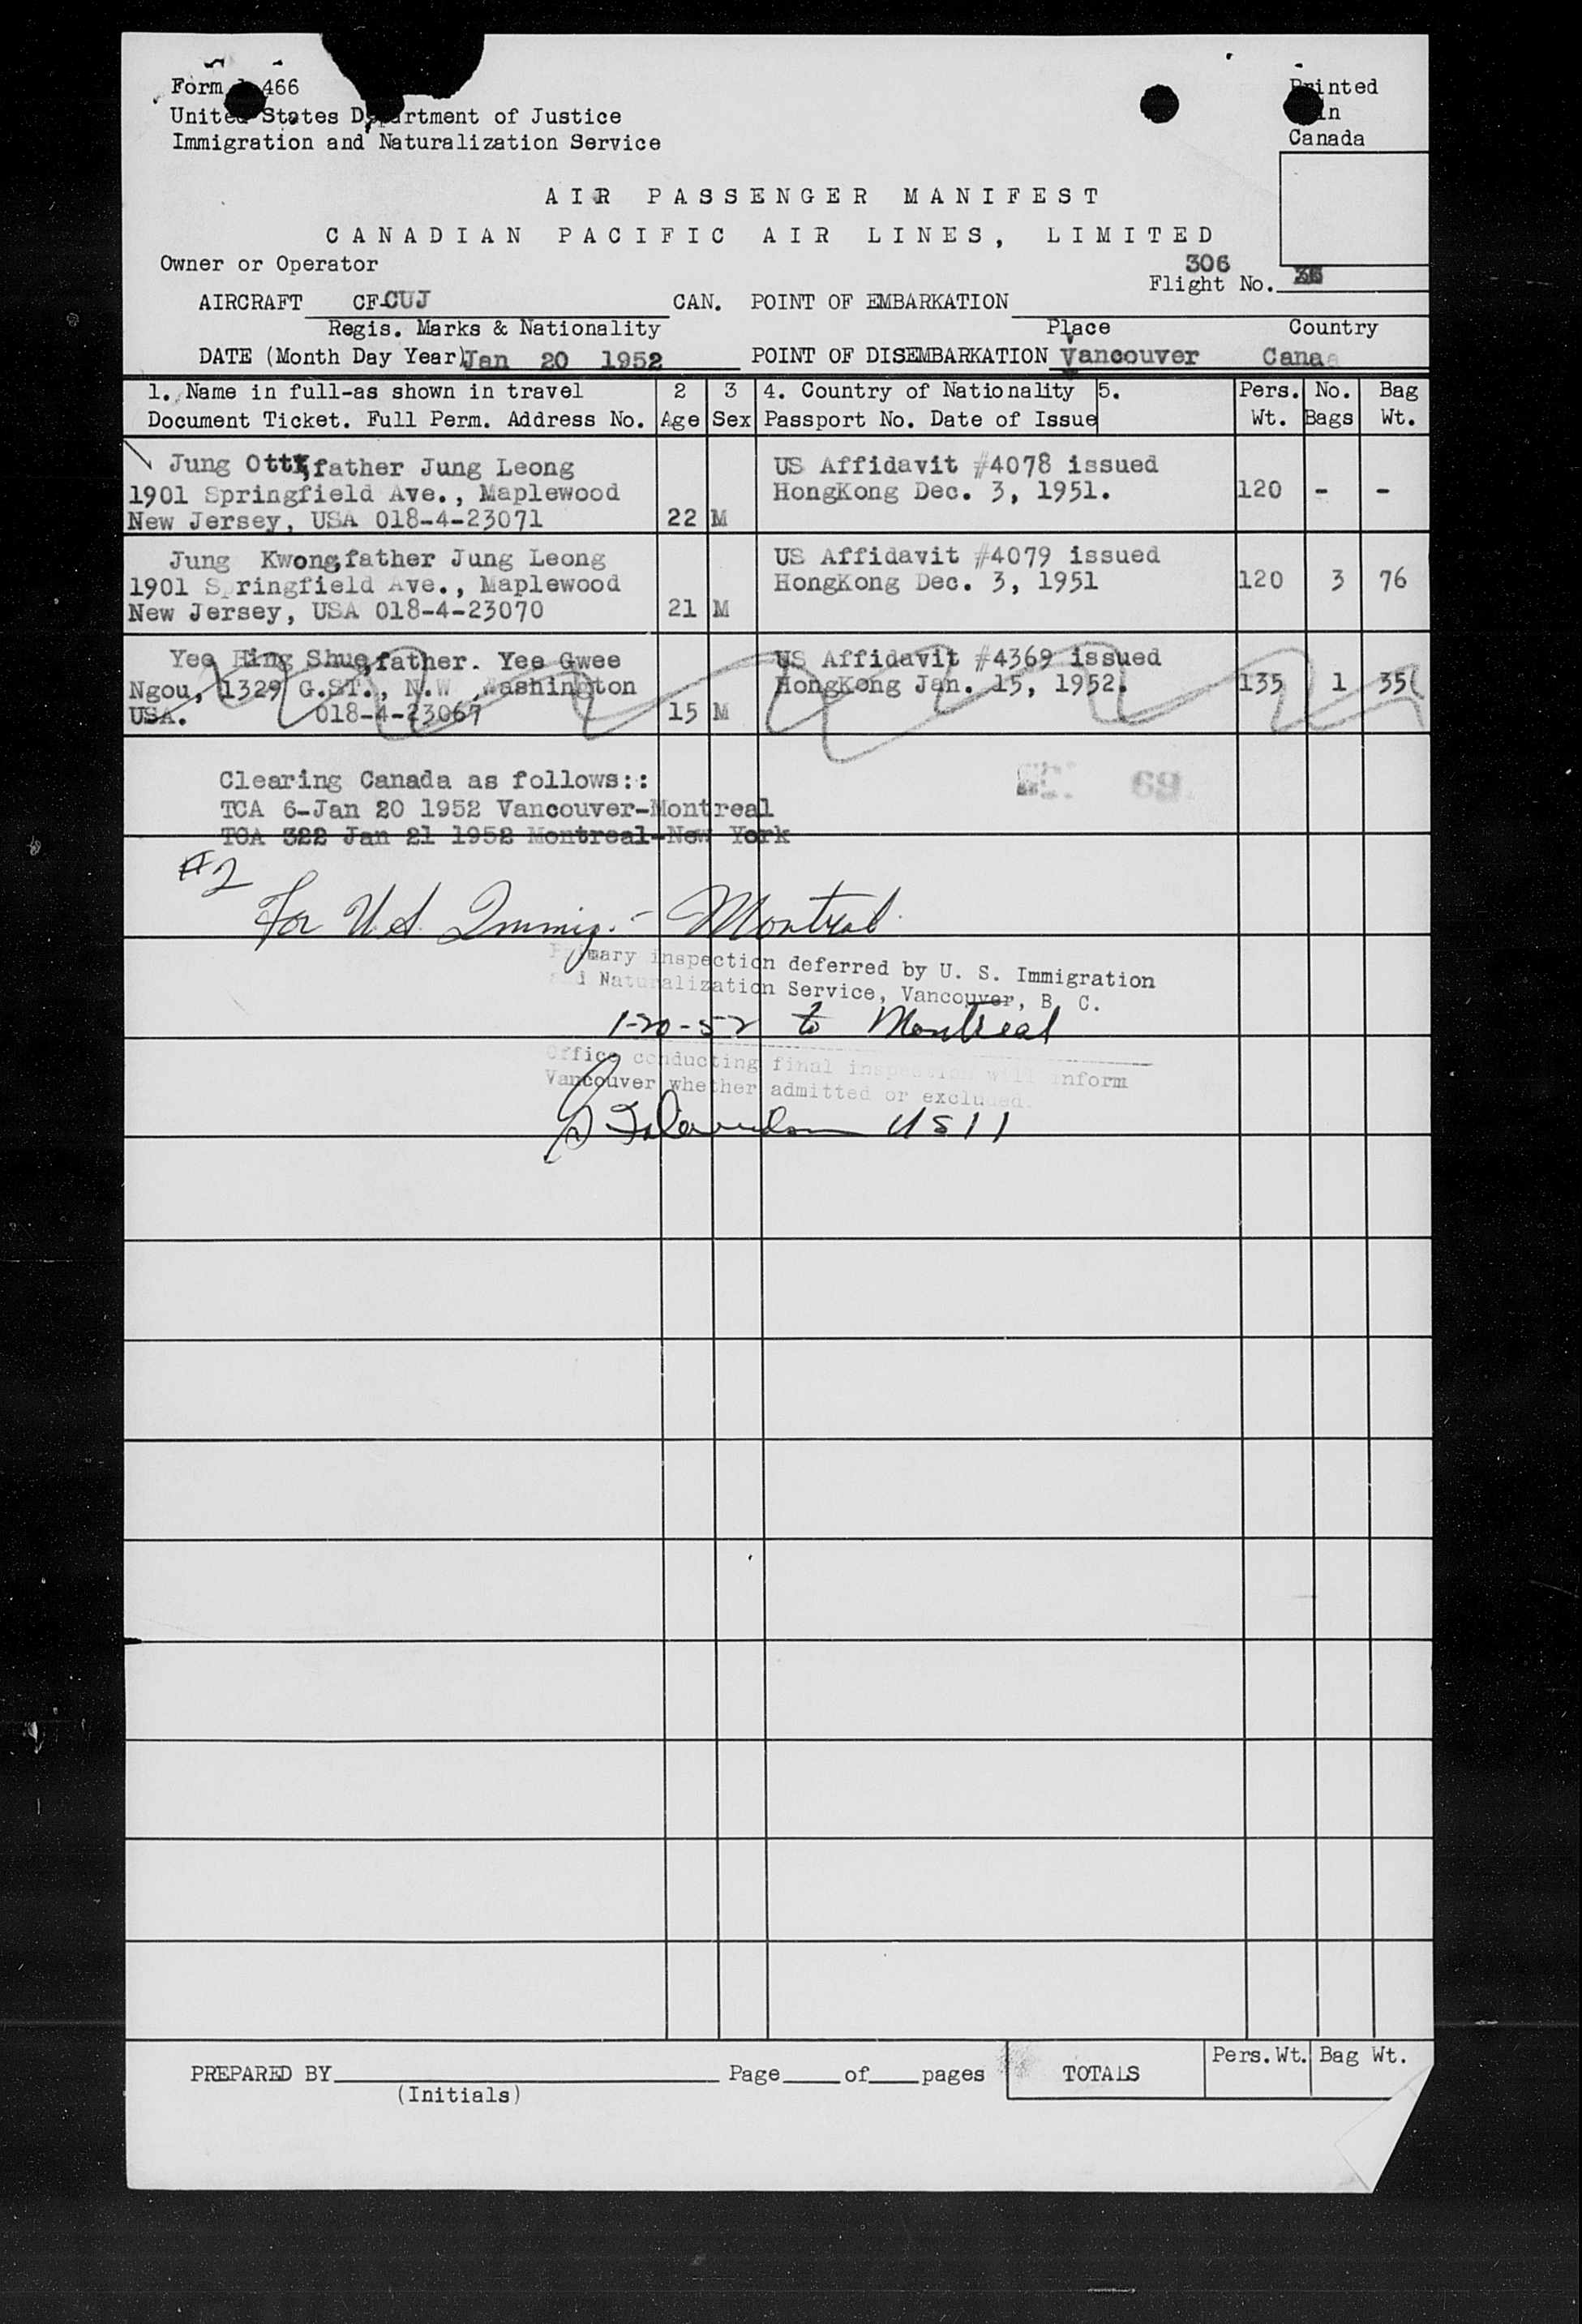 Form 466 Printed
United States Department of Justice in
Immigration and Naturalization Service Canada
AIR PASSENGER MANIFEST
CANADIAN PACIFIC AIR LINES, LIMITED
Owner or Operator 306
Flight No.
AIRCRAFT CF-CUJ CAN. POINT OF EMBARKATION
Regis. Marks & Nationality Place Country
DATE (Month Day Year) Jan 20 1952 POINT OF DISEMBARKATION Vancouver Canaa
1. Name in full-as shown in travel 2 3 4. Country of Nationality 5. Pers. No. Bag
Document Ticket. Full Perm. Address No. Age Sex Passport No. Date of Issue Wt. Bags Wt.
Jung father Jung Leong US Affidavit #4078 issued
1901 Springfield Ave., Maplewood HongKong Dec. 3, 1951. 120 - -
New Jersey, USA 018-4-23071 22 M
Jung Kwong father Jung Leong US Affidavit #4079 issued
1901 Springfield Ave., Maplewood HongKong Dec. 3, 1951 120 3 76
New Jersey, USA 018-4-23070 21 M
Yee Hing Shue, father. Yee Gwee US Affidavit #4369 issued
Ngou, 1329 G.ST., N.W. Washington HongKong Jan. 15, 1952. 135 1 35
USA. 018-4-23067 15 M
Clearing Canada as follows:: 69
TCA 6-Jan 20 1952 Vancouver-Montreal
TCA 322 Jan 21 1952 Montreal-New York
#2
For U.S. Immig. - Montreal.
Primary inspection deferred by U. S. Immigration
and Naturalization Service, Vancouver, B. C.
1-20-52 to Montreal
Office conducting final inspection will inform
Vancouver whether admitted or excluded.
USII
PREPARED BY Page of pages TOTALS Pers. Wt. Bag Wt.
(Initials)